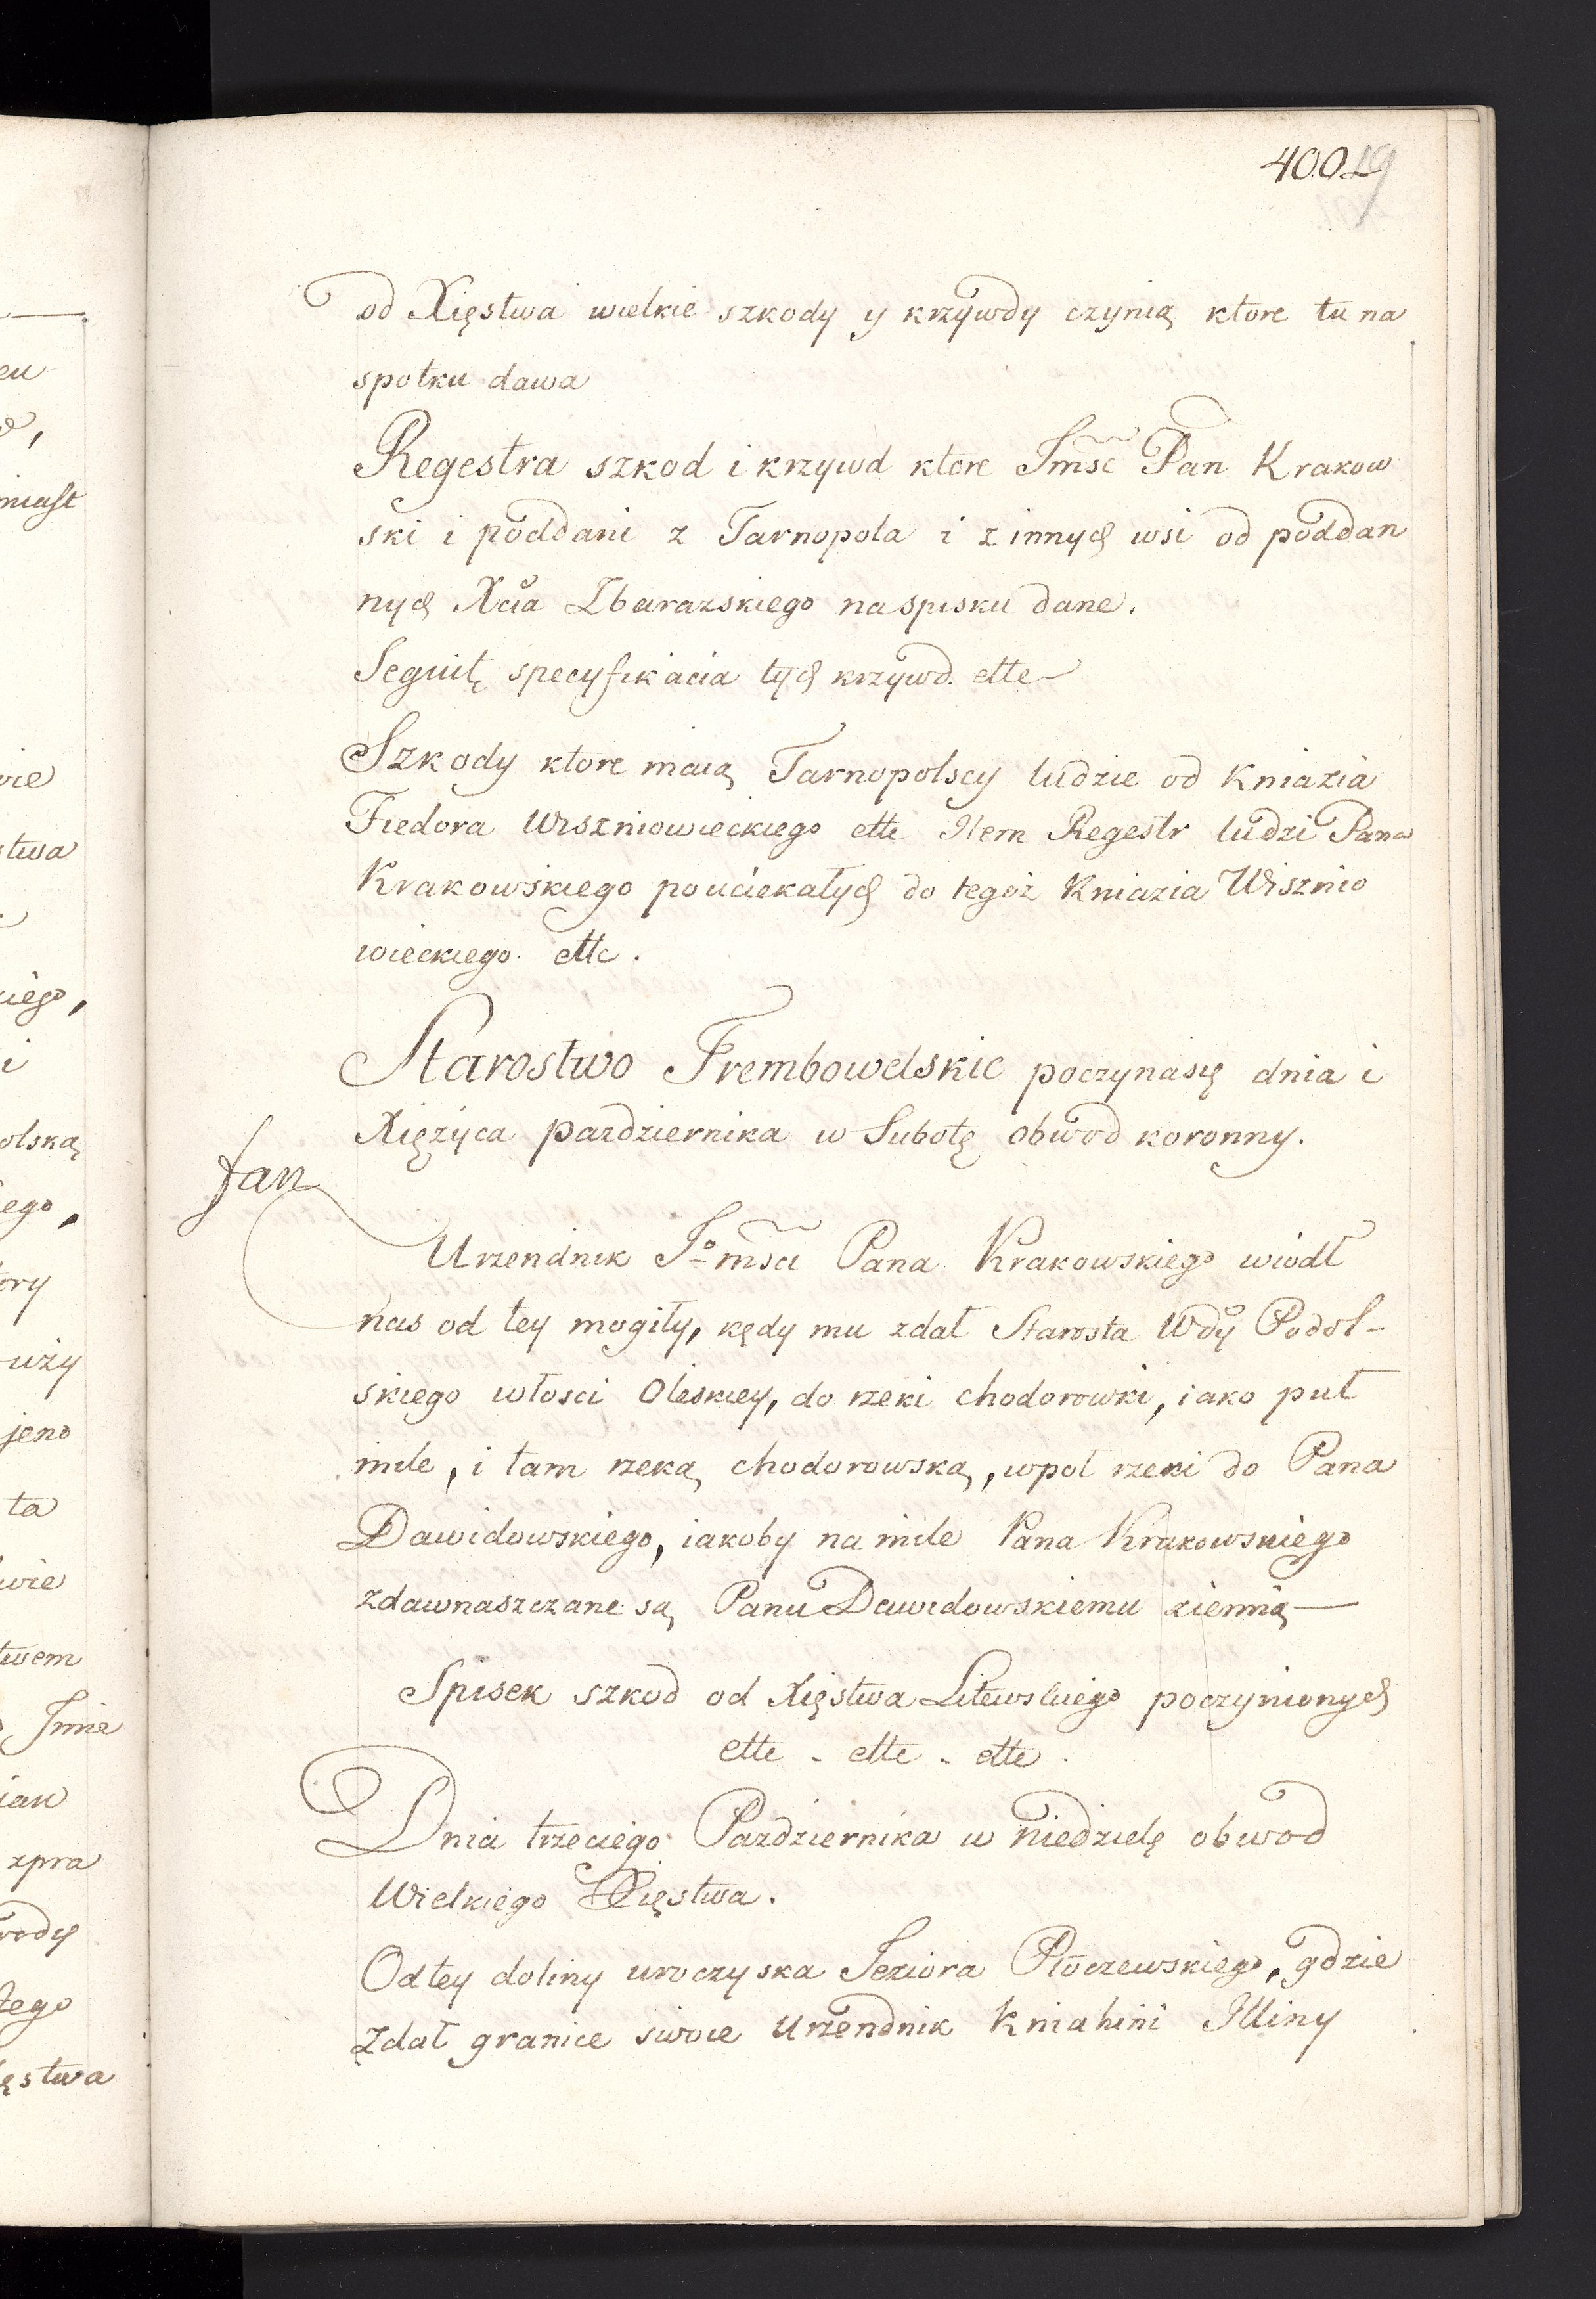 400 19
od Xięstwa wielkie szkody y krzywdy czynią ktore tu na
społku dawa
Regestra szkod i krzywd ktore Jmsć Pan Krakow
ski i poddani z Tarnopola i z innych wsi od poddan
nych Xcia Zbarazskiego na spisku dane.
Seguitę specyfikacia tych krzywd. ette
Szkody ktore maią Tarnopolscy ludzie od Kniazia
Fiedora Wiszniowieckiego ette Item Regestr ludzi Pana
Krakowskiego pouciekałych do tegoż Kniazia Wisznio
wieckiego. ettc.
Starostwo Trembowelskie poczynasię dnia i
Xiężyca pazdziernika w Subotę obwod koronny.
fan
Urzendnik Jomsci Pana Krakowskiego wiodł
nas od tey mogiły, kędy mu zdał Starosta Wdy Podol-
skiego włosci Oleskiey, do rzeki chodorowki, iako puł
mile, i tam rzeką chodorowską, wpoł rzeki do Pana
Dawidowskiego, iakoby na mile Pana Krakowskiego
zdawnaszczane są Panu Dawidowskiemu ziemią —
Spisek szkod od Xięstwa Litewskiego poczynionych
ette - ette - ette.
Dnia trzeciego Pazdziernika w niedzielę obwod
Wielkiego Xięstwa.
Od tey doliny uroczyska Jeziora Płoczewskiego, gdzie
zdał granice swoie Urzendnik Kniahini Illiny
eu
niast
wie
stwa
iego,
i
olską
iego,
ory
uży
jeno
ta
wie
twem
Jmie
iak
zpra
wody
tego
ęstwa